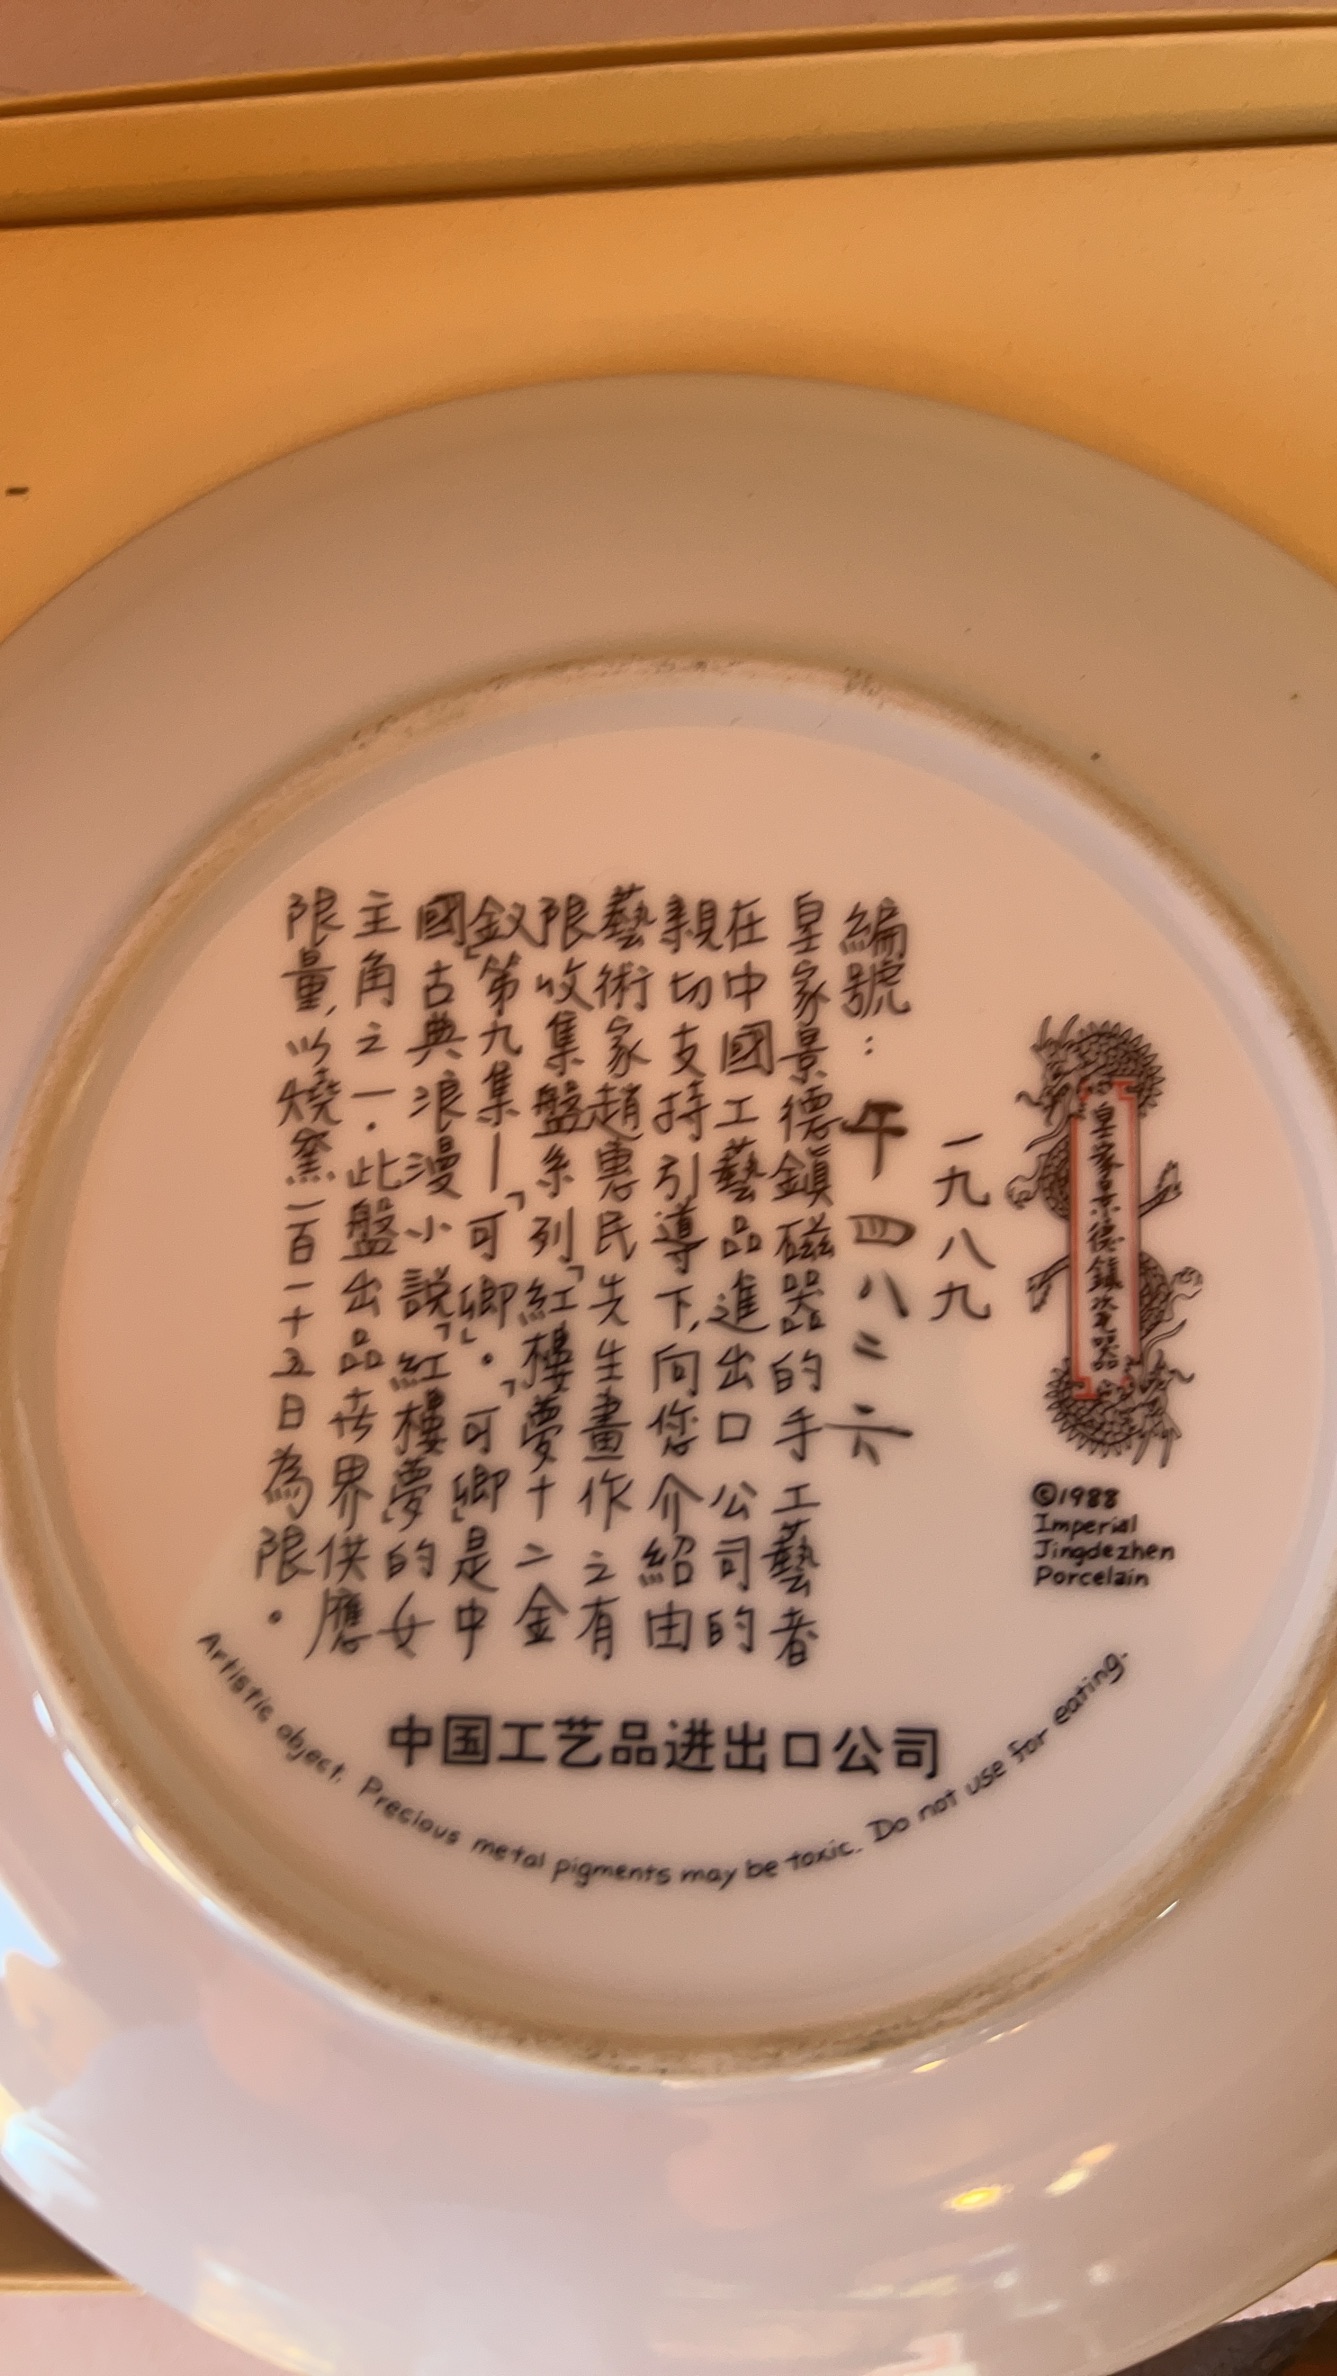 皇家景德鎮瓷器
©1988
Imperial
Jingdezhen
Porcelain
一九八九
編號：午四八二六
皇家景德鎮磁器的手工藝者
在中國工藝品進出口公司的
親切支持引導下,向您介紹由
藝術家趙惠民先生畫作之有
限收集盤系列「紅樓夢十二金
釵」第九集—「可卿」。「可卿」是中
國古典浪漫小說「紅樓夢」的女
主角之一.此盤出品世界供應
限量,以燒窯一百一十五日為限。
中国工艺品进出口公司
Artistic object. Precious metal pigments may be toxic. Do not use for eating.